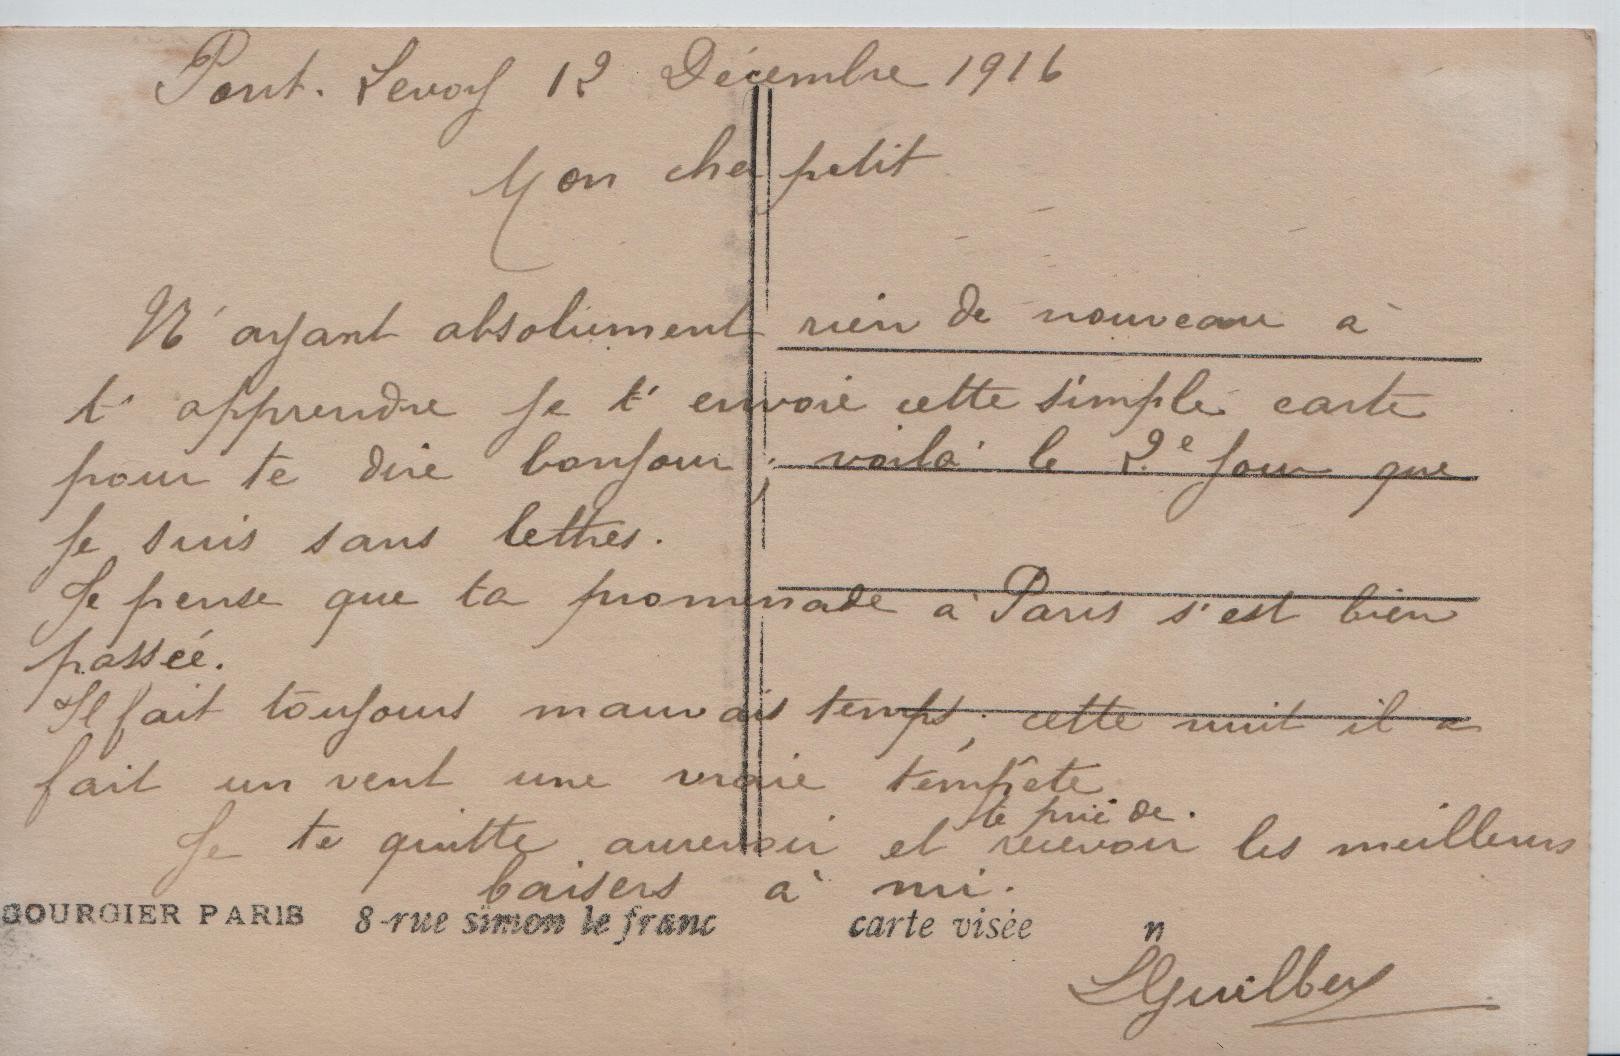 Pont-Levoy 12 Décembre 1916
Mon cher petit
N'ayant absolument rien de nouveau à
t'apprendre je t'envoie cette simple carte
pour te dire bonjour, voilà le 2e jour que
je suis sans lettres.
Je pense que ta promenade à Paris s'est bien
passée.
Il fait toujours mauvais temps, cette nuit il a
fait un vent une vraie tempête
te prie de.
Je te quitte aurevoir et recevoir les meilleurs
baisers à mi.
GOURGIER PARIS 8-rue simon le franc carte visée n
LGuilbert